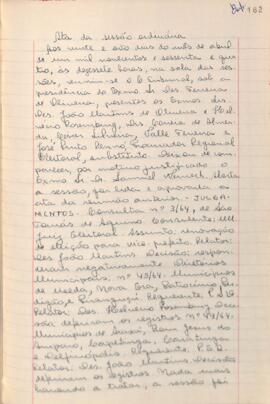 162
Ata da sessão ordinária
Aos vinte e seis dias do mês de abril
de um mil novecentos e sessenta e qua-
tro, às dezessete horas, na sala das ses-
sões, reuniu-se o E. Tribunal, sob a
presidência do Exmo. Sr. Des. Ferreira
de Oliveira, presentes os Exmos. Srs.
Des. João Martins de Oliveira e
Drs. Correia de Almei-
da, Valle Ferreira e
José Pinto Renno, Procurador Regional
Eleitoral, substituto. Deixou de com-
parecer, por motivo justificado, o
Exmo. Sr. Dr. Aberta
a sessão, foi lida e aprovada a
ata da reunião anterior. - JULGA-
MENTOS. Consulta nº 3/64, de São
Tomás de Aquino. Consulente: MM.
Juiz Eleitoral. Assunto: renovação
de eleição para vice-prefeito. Relator:
Des. João Martins. Decisão: respon-
deram negativamente. Diretórios
Municipais. nº 43/64. Municípios
de Nova Era, Patrocínio, Per-
digão e Pirangussu. Requerente:
Relator: Des. De-
ram os registros. nº
Municípios de Bom Jesus do
Amparo, Capetinga,
e Delfinópolis. Requerente: P.S.D.
Relator: Des. João Martins. Decisão:
deferiram os registros. Nada mais
havendo a tratar, a sessão foi